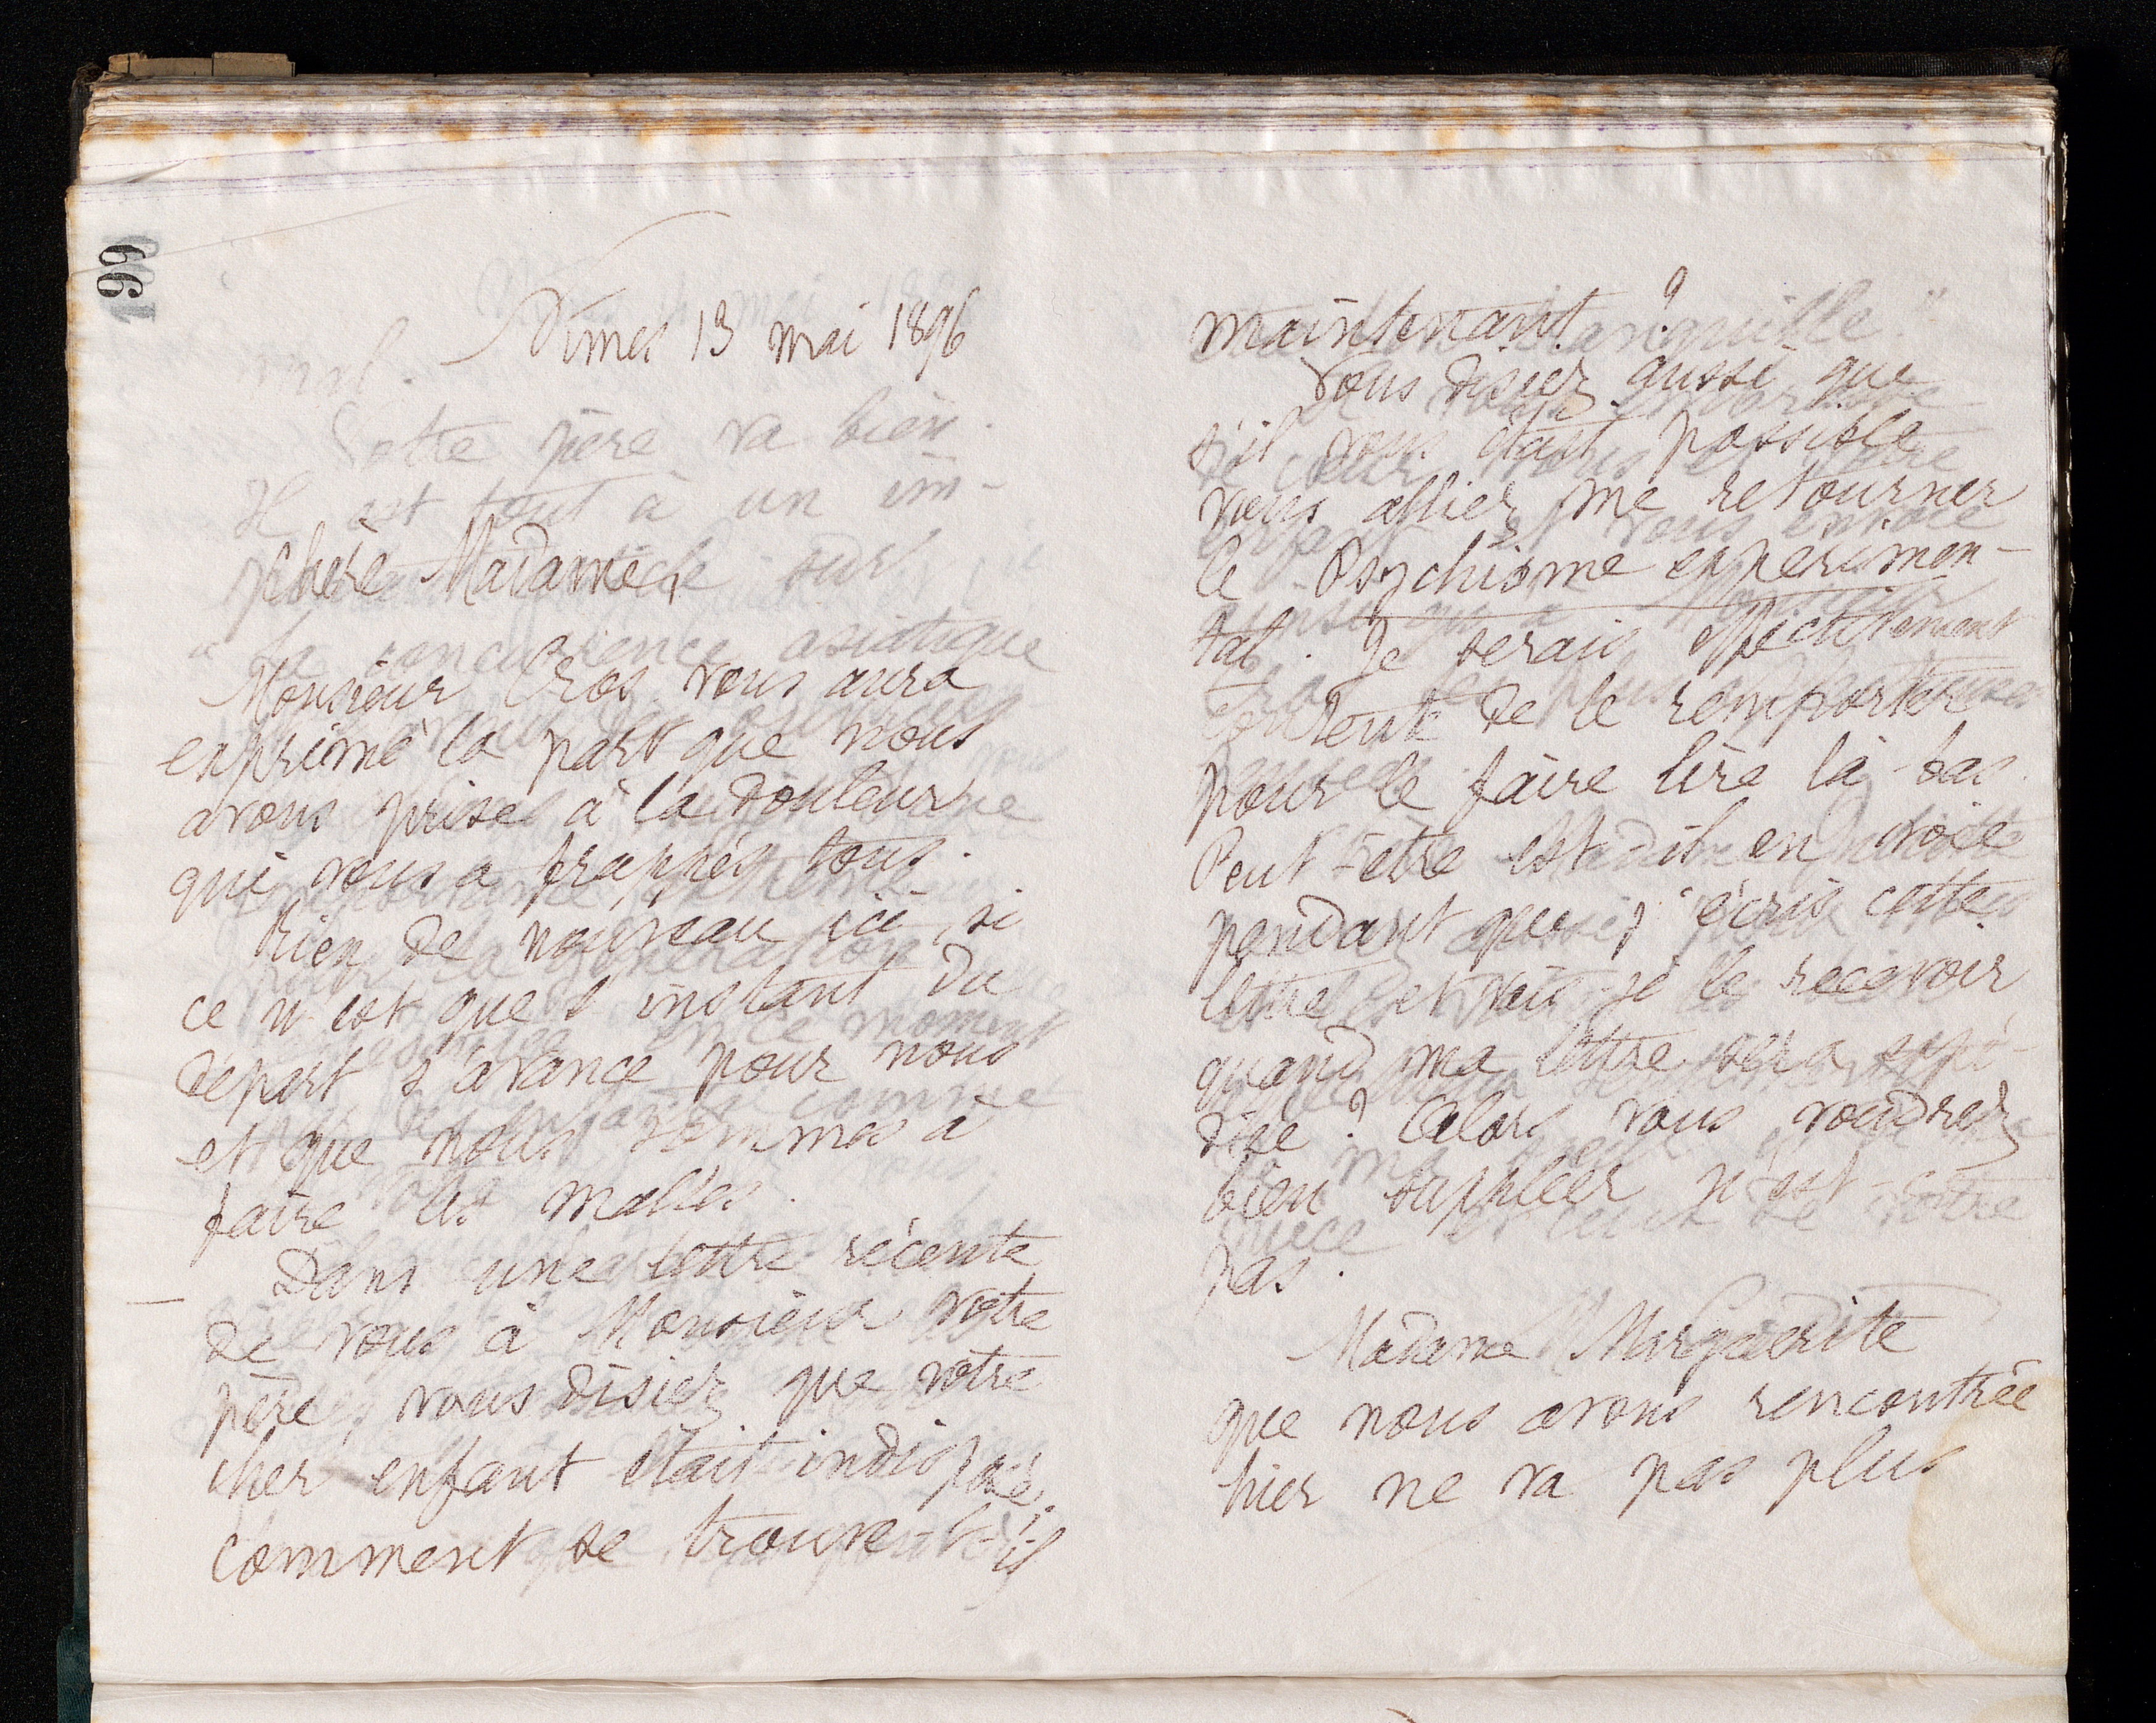 99
Nimes 13 mai 1896
Chère Madame,
Monsieur Cros vous aura
exprimé la part que nous
avons prise à la douleur
qui vous a frappés tous.
Rien de nouveau ici, si
ce n'est que l'instant du
départ s'avance pour nous
et que nous sommes à
faire les malles.
Dans une lettre récente
de vous à Monsieur votre
père, vous disiez que votre
cher enfant était indisposé;
comment se trouve-t-il
maintenant?
Vous disiez aussi que
s'il vous était possible
vous alliez me retourner
le Psychisme expérimen-
tal. Je serais effectivement
content de le remporter
pour le faire lire là-bas.
Peut-être est-il en route
pendant que j'écris cette
lettre et vais-je le recevoir,
quand ma lettre sera expé-
diée? Alors vous voudrez
bien suppléer n'est-ce
pas.
Madame Marguerite
que nous avons rencontrée
hier ne va pas plus